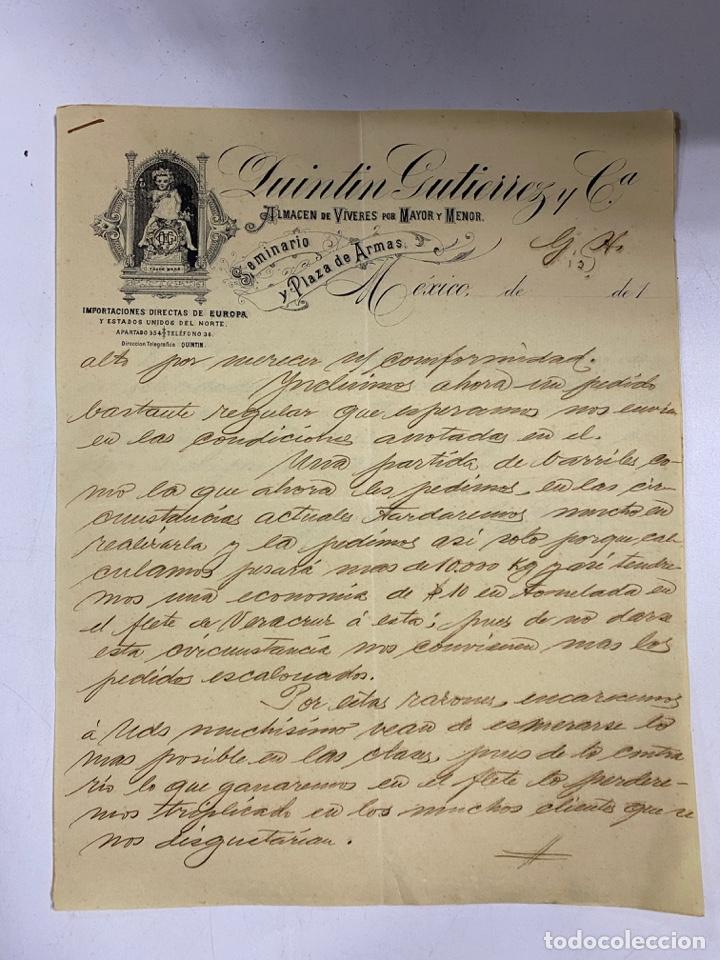 Quintin Gutierrez y Cª
ALMACEN DE VÍVERES POR MAYOR Y MENOR.
Seminario
y Plaza de Armas.
G. H.
México, de de 1
QG
TRADE MARK
IMPORTACIONES DIRECTAS DE EUROPA
Y ESTADOS UNIDOS DEL NORTE.
APARTADO 354 TELÉFONO 36.
Direccion Telegráfica QUINTIN.
alto por merecer s/ comformidad.
Yncluimos ahora un pedido
bastante regular que esperamos nos envien
en las condiciones anotadas en el.
Una partida de barriles co-
mo la que ahora les pedimos, en las cir-
cunstancias actuales tardaremos mucho en
realizarla y la pedimos así solo porque cal-
culamos pesará mas de 10.000 Kg y así tendre-
mos una economia de $10 en tonelada en
el flete de Veracruz á esta; pues de no darse
esta circumstancia nos convienen mas los
pedidos escalonados.
Por estas razones, encarecemos
á Uds muchísimo vean de esmerarse lo
mas posible en las clases, pues de lo contra
rio lo que ganaremos en el flete lo perdere-
mos triplicado en los muchos clientes que se
nos disgustarían.
todocoleccion
todocoleccion.net